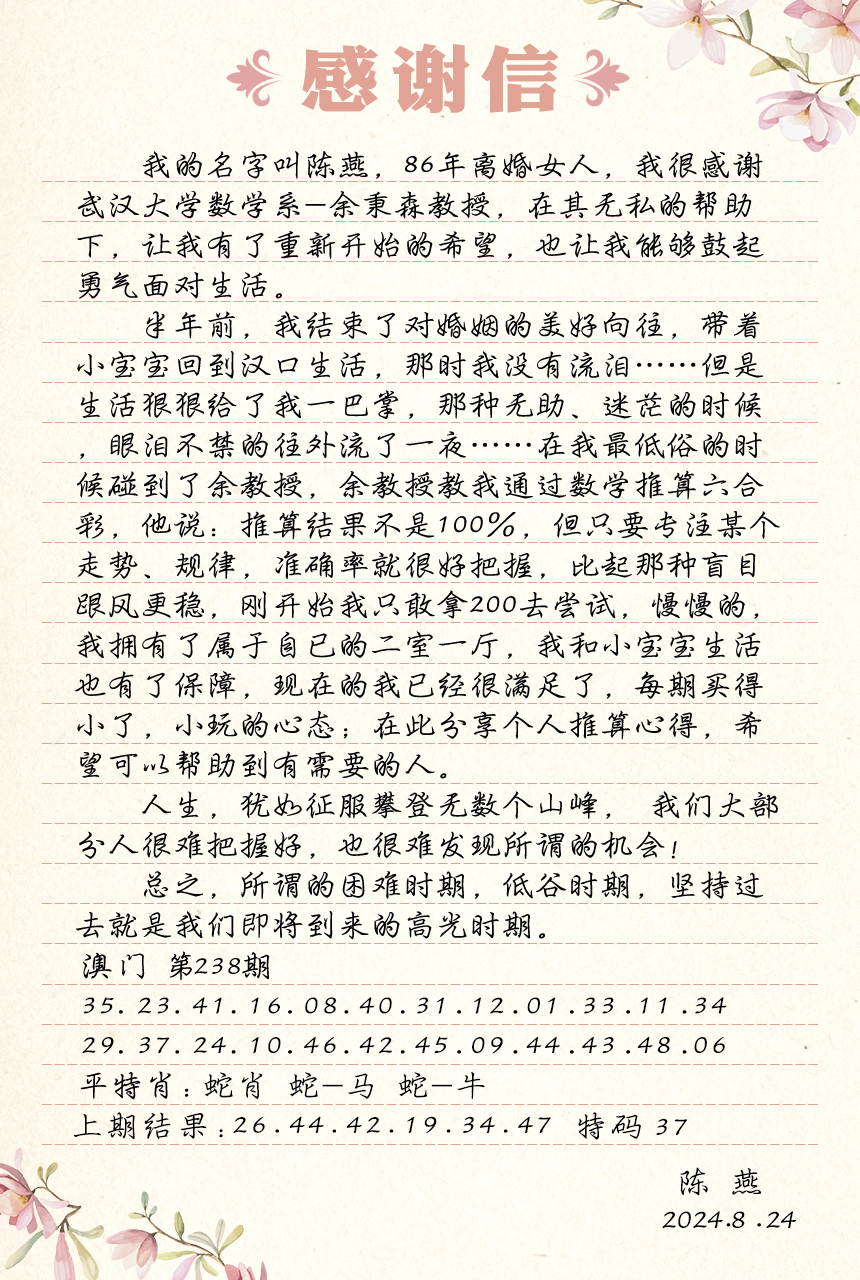 感谢信
我的名字叫陈燕，86年离婚女人，我很感谢
武汉大学数学系—余秉森教授，在其无私的帮助
下，让我有了重新开始的希望，也让我能够鼓起
勇气面对生活。
半年前，我结束了对婚姻的美好向往，带着
小宝宝回到汉口生活，那时我没有流泪……但是
生活狠狠给了我一巴掌，那种无助、迷茫的时候
，眼泪不禁的往外流了一夜……在我最低俗的时
候碰到了余教授，余教授教我通过数学推算六合
彩，他说：推算结果不是100%，但只要专注某个
走势、规律，准确率就很好把握，比起那种盲目
跟风更稳，刚开始我只敢拿200去尝试，慢慢的，
我拥有了属于自已的二室一厅，我和小宝宝生活
也有了保障，现在的我已经很满足了，每期买得
小了，小玩的心态；在此分享个人推算心得，希
望可以帮助到有需要的人。
人生，犹如征服攀登无数个山峰， 我们大部
分人很难把握好，也很难发现所谓的机会！
总之，所谓的困难时期，低谷时期，坚持过
去就是我们即将到来的高光时期。
澳门 第238期
35.23.41.16.08.40.31.12.01.33.11.34
29.37.24.10.46.42.45.09.44.43.48.06
平特肖：蛇肖 蛇—马 蛇—牛
上期结果：26.44.42.19.34.47 特码 37
陈 燕
2024.8.24